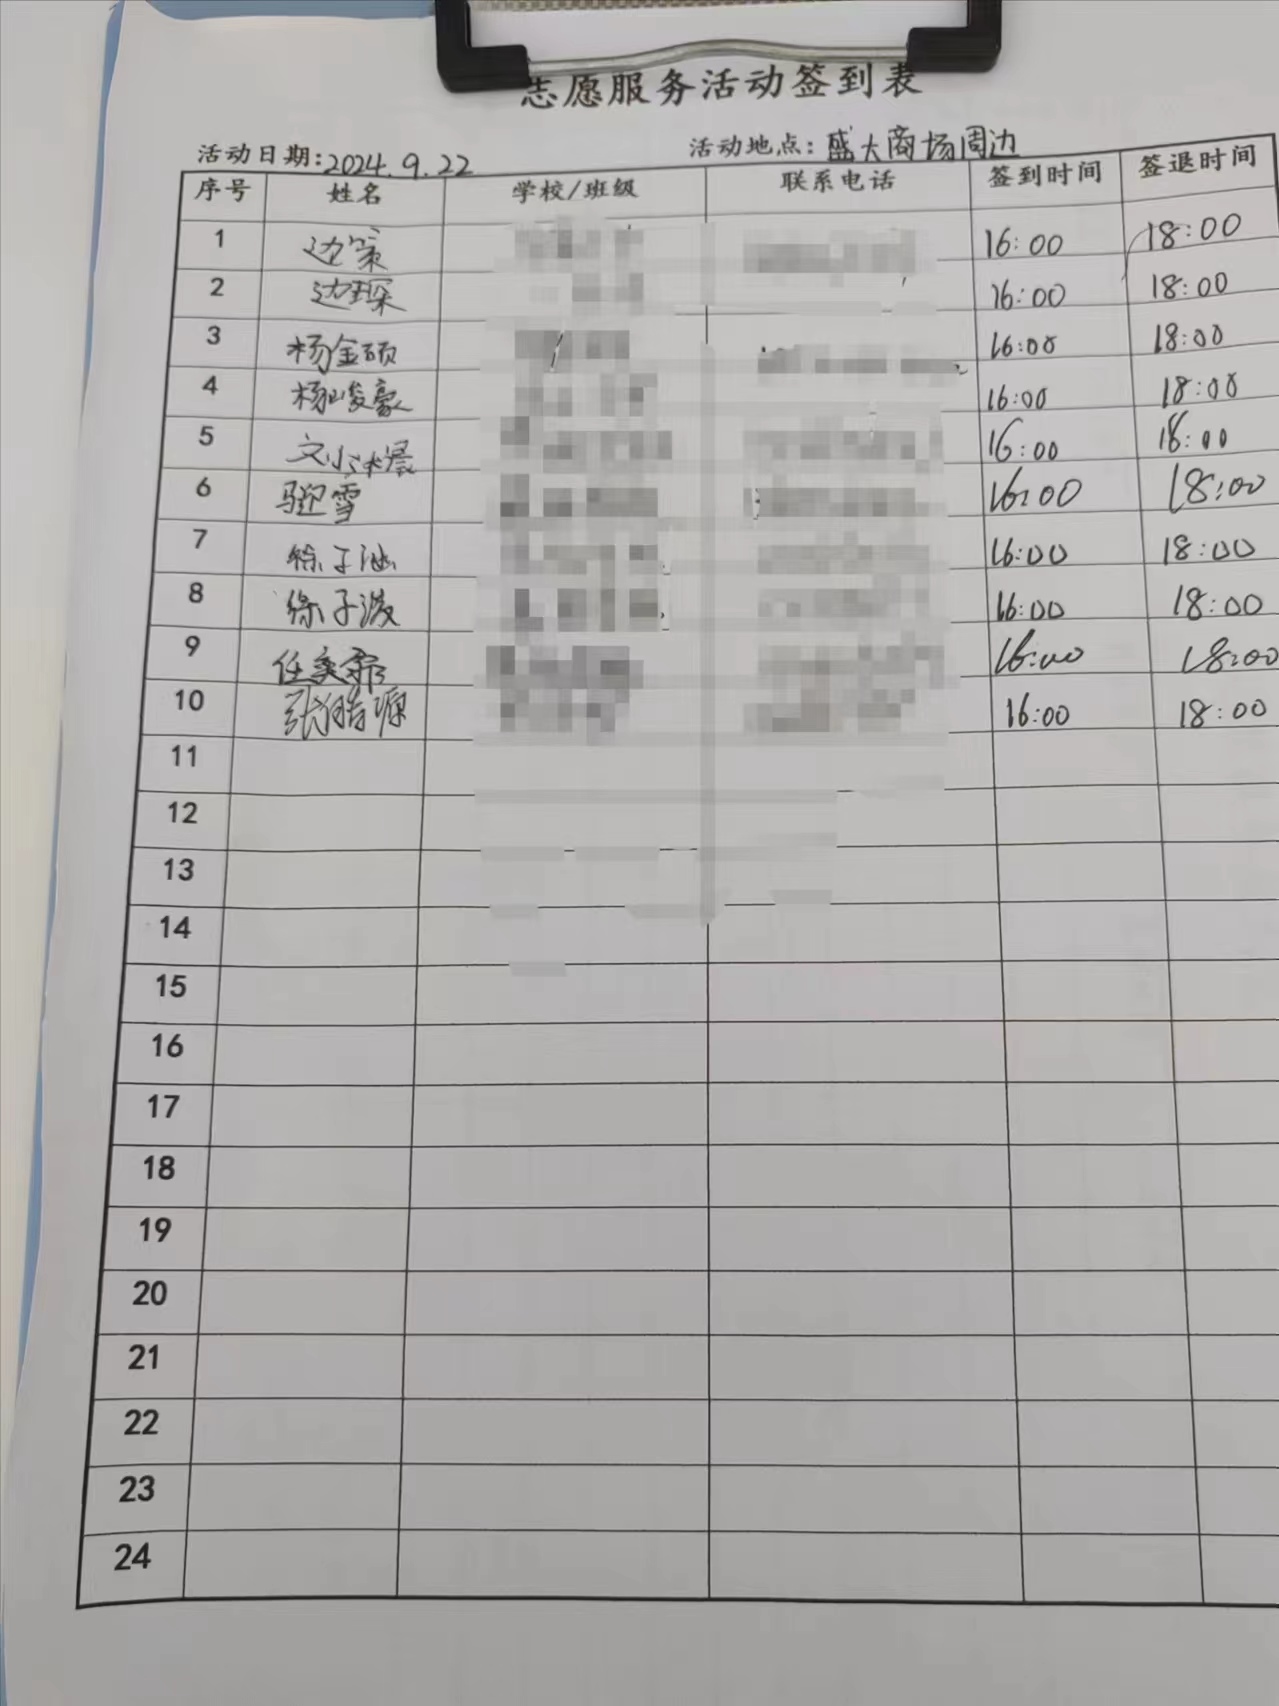 志愿服务活动签到表
活动日期:2024.9.22 活动地点:盛大商场周边
序号 姓名 学校/班级 联系电话 签到时间 签退时间
1 边策 16:00 18:00
2 边琛 16:00 18:00
3 杨金硕 16:00 18:00
4 杨峻豪 16:00 18:00
5 文小沐晨 16:00 18:00
6 骆迎雪 16:00 18:00
7 徐子涵 16:00 18:00
8 徐子淑 16:00 18:00
9 任奕霏 16:00 18:00
10 张皓源 16:00 18:00
11
12
13
14
15
16
17
18
19
20
21
22
23
24